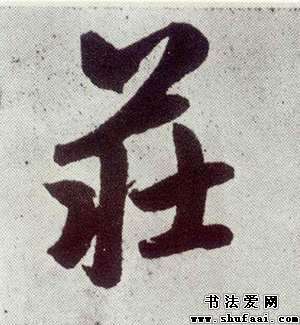 莊
书法爱网
www.shufaai.com